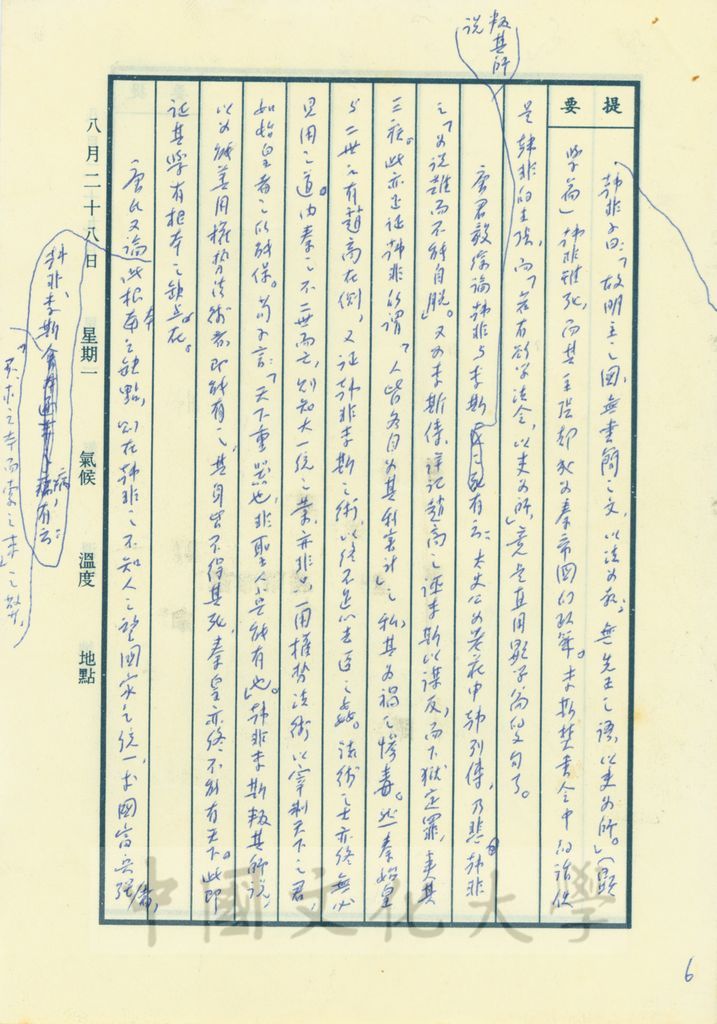 提要
韓非子曰:「故明主之國,無書簡之文,以法為教;無先王之語,以吏為師。」(顯
學篇)韓非雖死,而其主張卻成為秦帝國的政策。李斯焚書令中的話
是韓非的主張,而「若有欲學法令,以吏為師」竟是直用顯學篇的文句了。
唐君毅論韓非與李斯 有云:太史公為老莊申韓列傳,乃悲韓非
叛其所說
之「為說難而不能自脫」。又為李斯傳,詳記趙高之誣李斯以謀反,而下獄定罪,夷其
三族。此亦正証韓非所謂「人皆各自為其利害計」之私,其為禍之慘毒。此秦始皇
與二世之有趙高在側,又証韓非李斯之術,以終不足以去 之姦。法術之士亦終無必
見用之道。由秦之不二世而亡,則知大一統之業,亦非只用權勢法術以宰制天下之君,
如始皇者之所能保。荀子言:「天下重器也,非聖人莫能有也」。韓非李斯叛其所說,
以為能善用權勢法術者,即能有之,其身皆不得其死,秦皇亦終不能有天下。此即
証其學有根本之缺點在。
唐氏又論此根本之缺點,則在韓非之不知人之整國家之統一,求國富兵強,
韓非李斯 病,有云:
「不求之本而索之末」之弊,
八月二十八日 星期一 氣候 溫度 地點
中國文化大學
6